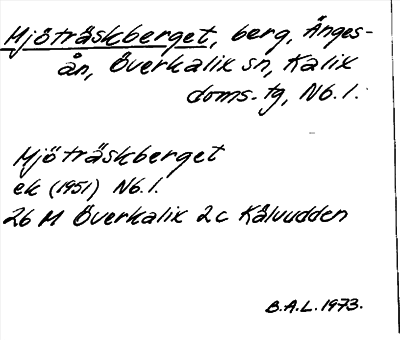 Mjöträskberget, berg, Änges-
ån, Överkalix sn, Kalix
doms. tg, Nb. l.
Mjöträskberget
ek (1951) Nb. l.
26 M Överkalix 2c Kåluudden
B.A.L. 1973.